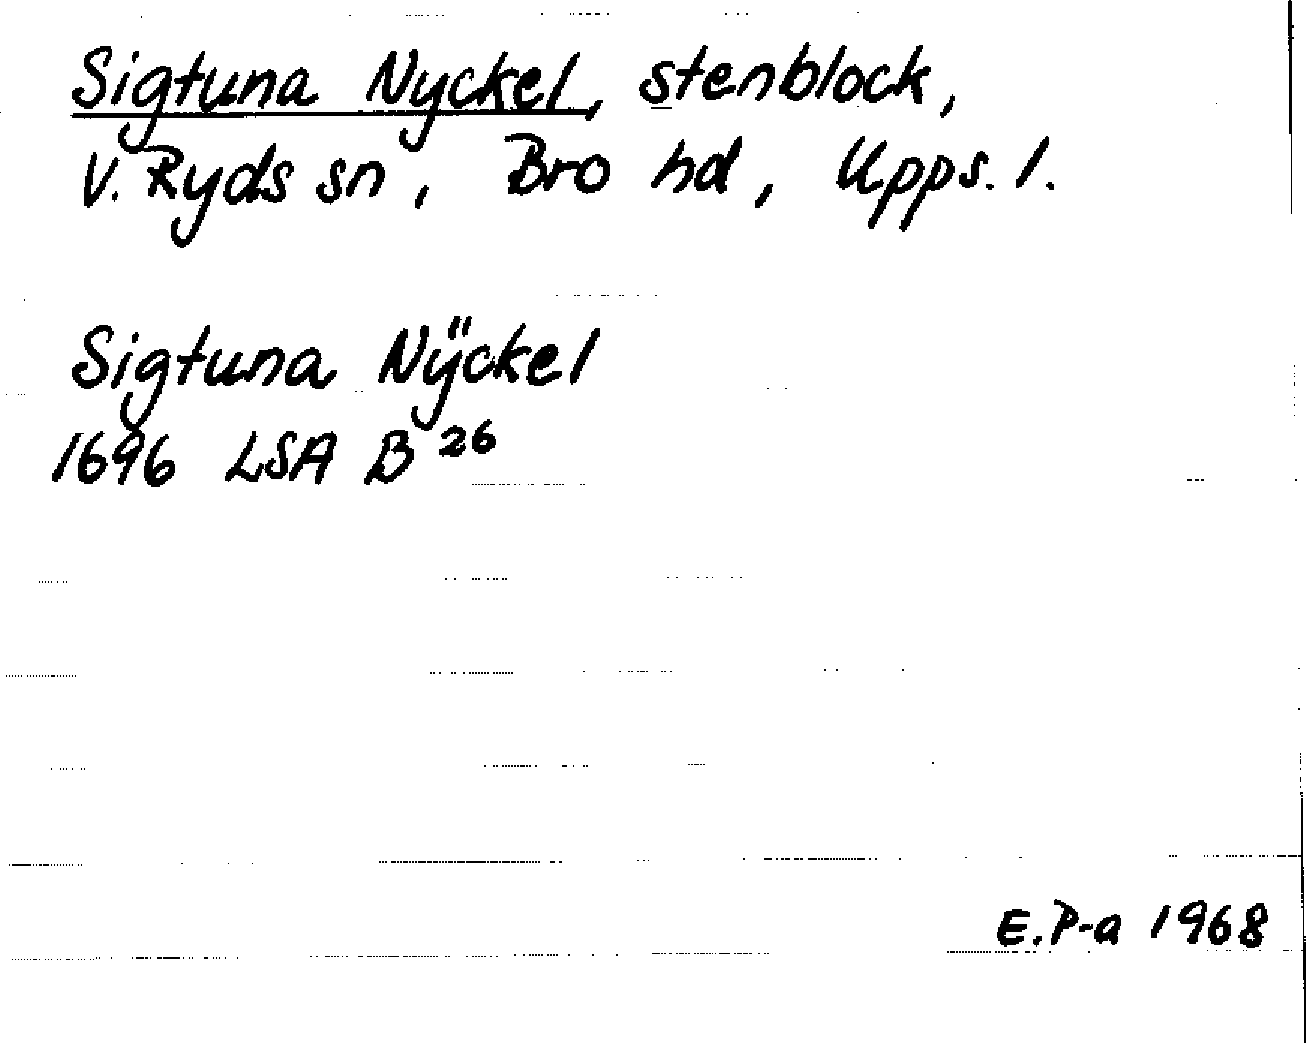 Sigtuna Nyckel, stenblock,
V. Ryds sn, Bro hd, Upps. l.
Sigtuna Nÿckel
1696 LSA B 26
E.P-a 1968